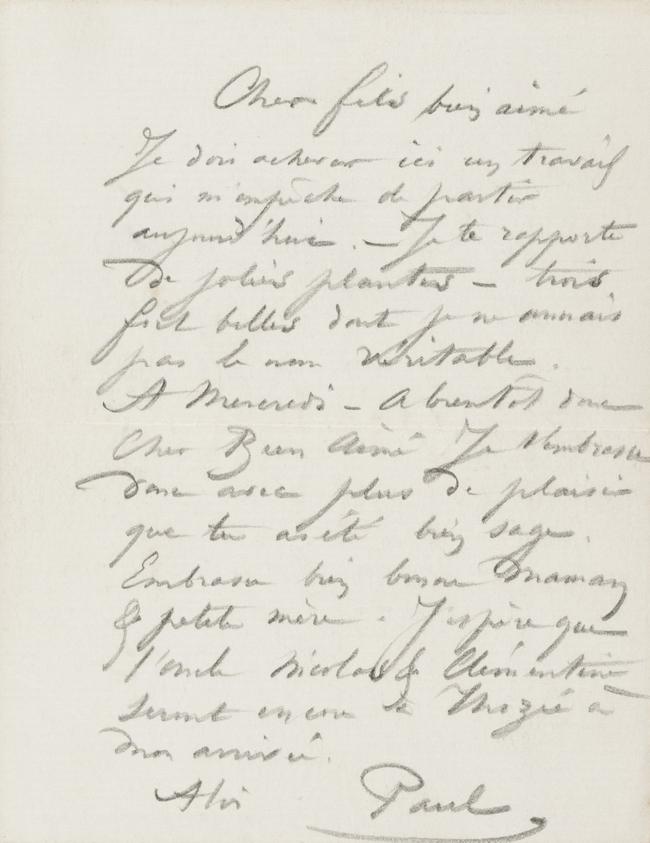 Cher fils bien aimé
Je dois achever ici un travail
qui m'empêche de partir
aujourd'hui. – Je te rapporte
de jolies plantes – trois
fort belles dont je ne connais
pas le nom véritable.
A Mercredi – A bientôt donc
Cher Bien Aimé Je t'embrasse
donc avec plus de plaisir
que tu as été bien sage.
Embrasse bien bonne Maman
& petite mère. J'espère que
l'oncle Nicolas & Clémentine
seront encore à à
mon arrivée.
A toi Paul